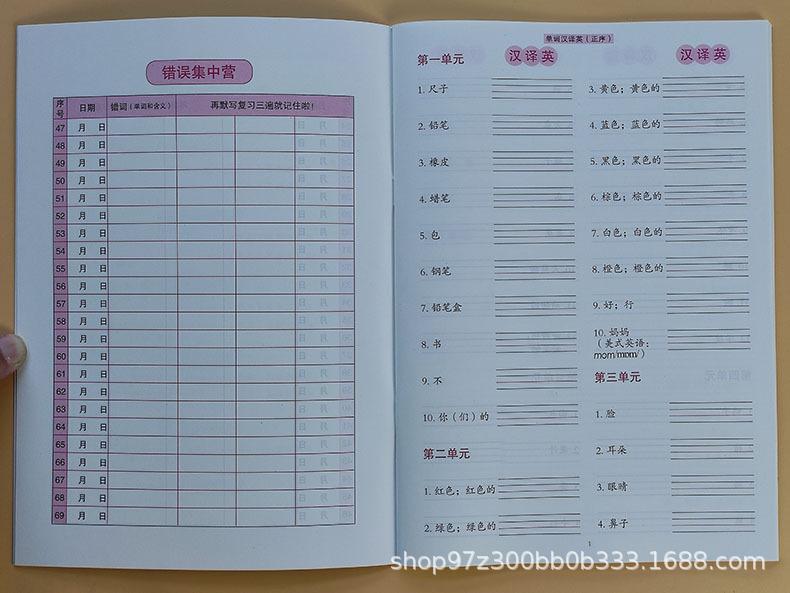 错误集中营
序号 日期 错词(单词和含义) 再默写复习三遍就记住啦!
47 月 日
48 月 日
49 月 日
50 月 日
51 月 日
52 月 日
53 月 日
54 月 日
55 月 日
56 月 日
57 月 日
58 月 日
59 月 日
60 月 日
61 月 日
62 月 日
63 月 日
64 月 日
65 月 日
66 月 日
67 月 日
68 月 日
69 月 日
单词汉译英(正序)
第一单元 汉译英
1. 尺子
2. 铅笔
3. 橡皮
4. 蜡笔
5. 包
6. 钢笔
7. 铅笔盒
8. 书
9. 不
10. 你(们)的
第二单元
1. 红色;红色的
2. 绿色;绿色的
汉译英
3. 黄色;黄色的
4. 蓝色;蓝色的
5. 黑色;黑色的
6. 棕色;棕色的
7. 白色;白色的
8. 橙色;橙色的
9. 好;行
10. 妈妈
(美式英语:
mom/mɒm/)
第三单元
1. 脸
2. 耳朵
3. 眼睛
4. 鼻子
1
shop97z300bb0b333.1688.com